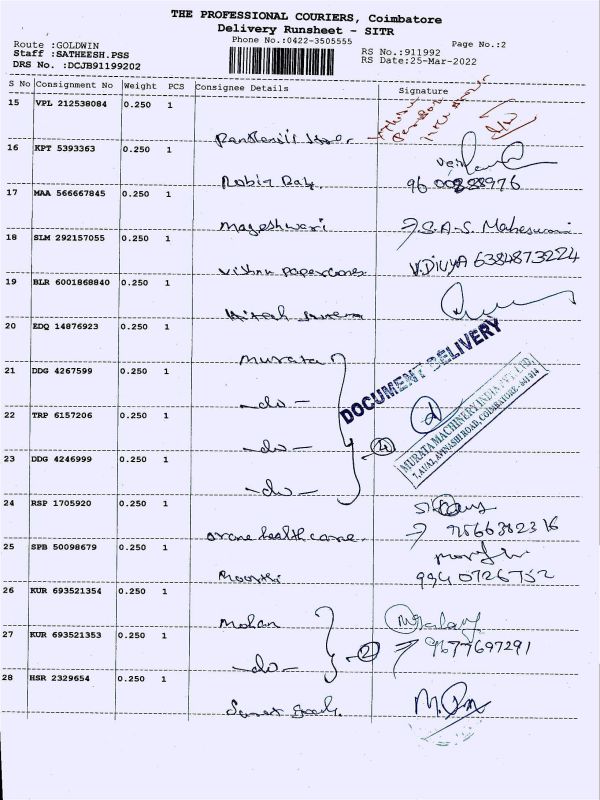 THE PROFESSIONAL COURIERS, Coimbatore
Delivery Runsheet - SITR
Phone No.:0422-3505555
Page No.:2
Route :GOLDWIN
Staff :SATHEESH.PSS
RS No.:911992
DRS No. :DCJB91199202
RS Date:25-Mar-2022
S No Consignment No Weight PCS Consignee Details Signature
15 VPL 212538084 0.250 1
16 KPT 5393363 0.250 1
Robin Raj. 96 00888976
17 MAA 566667845 0.250 1
Mageshwari S.A.S. Maheswari
18 SLM 292157055 0.250 1
Vishnu Papercones V.DIVYA 6384873224
19 BLR 6001868840 0.250 1
20 EDQ 14876923 0.250 1
Murata
DOCUMENT DELIVERY
21 DDG 4267599 0.250 1
-do-
MURATA MACHINERY INDIA PVT. LTD.
22 TRP 6157206 0.250 1
-do- 4
23 DDG 4246999 0.250 1
-do-
24 RSP 1705920 0.250 1
health care 9566382316
25 SPB 50098679 0.250 1
Moorthi 9940726752
26 KUR 693521354 0.250 1
Mohan
27 KUR 693521353 0.250 1
-do- 2 9677697291
28 HSR 2329654 0.250 1